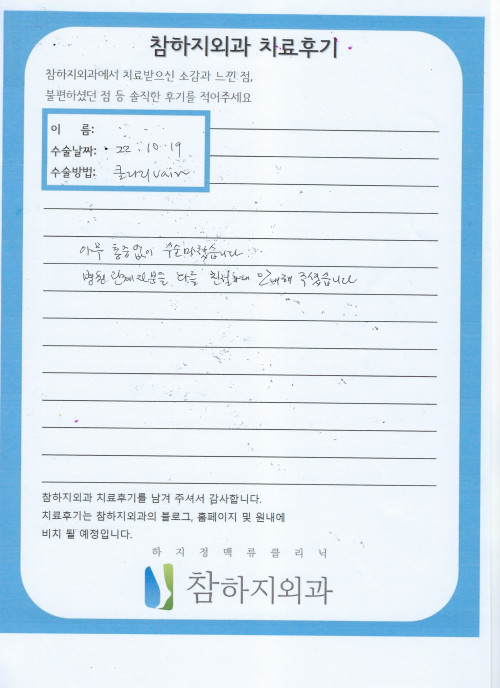 참하지외과 치료후기
참하지외과에서 치료받으신 소감과 느낀 점,
불편하셨던 점 등 솔직한 후기를 적어주세요
이 름:
수술날짜: 22. 10. 19
수술방법: 클라리vain
아무 통증없이 수술마쳤습니다
병원 관계자분들 다들 친절하게 안내해 주셨습니다
참하지외과 치료후기를 남겨 주셔서 감사합니다.
치료후기는 참하지외과의 블로그, 홈페이지 및 원내에
비치 될 예정입니다.
하지정맥류클리닉
참하지외과